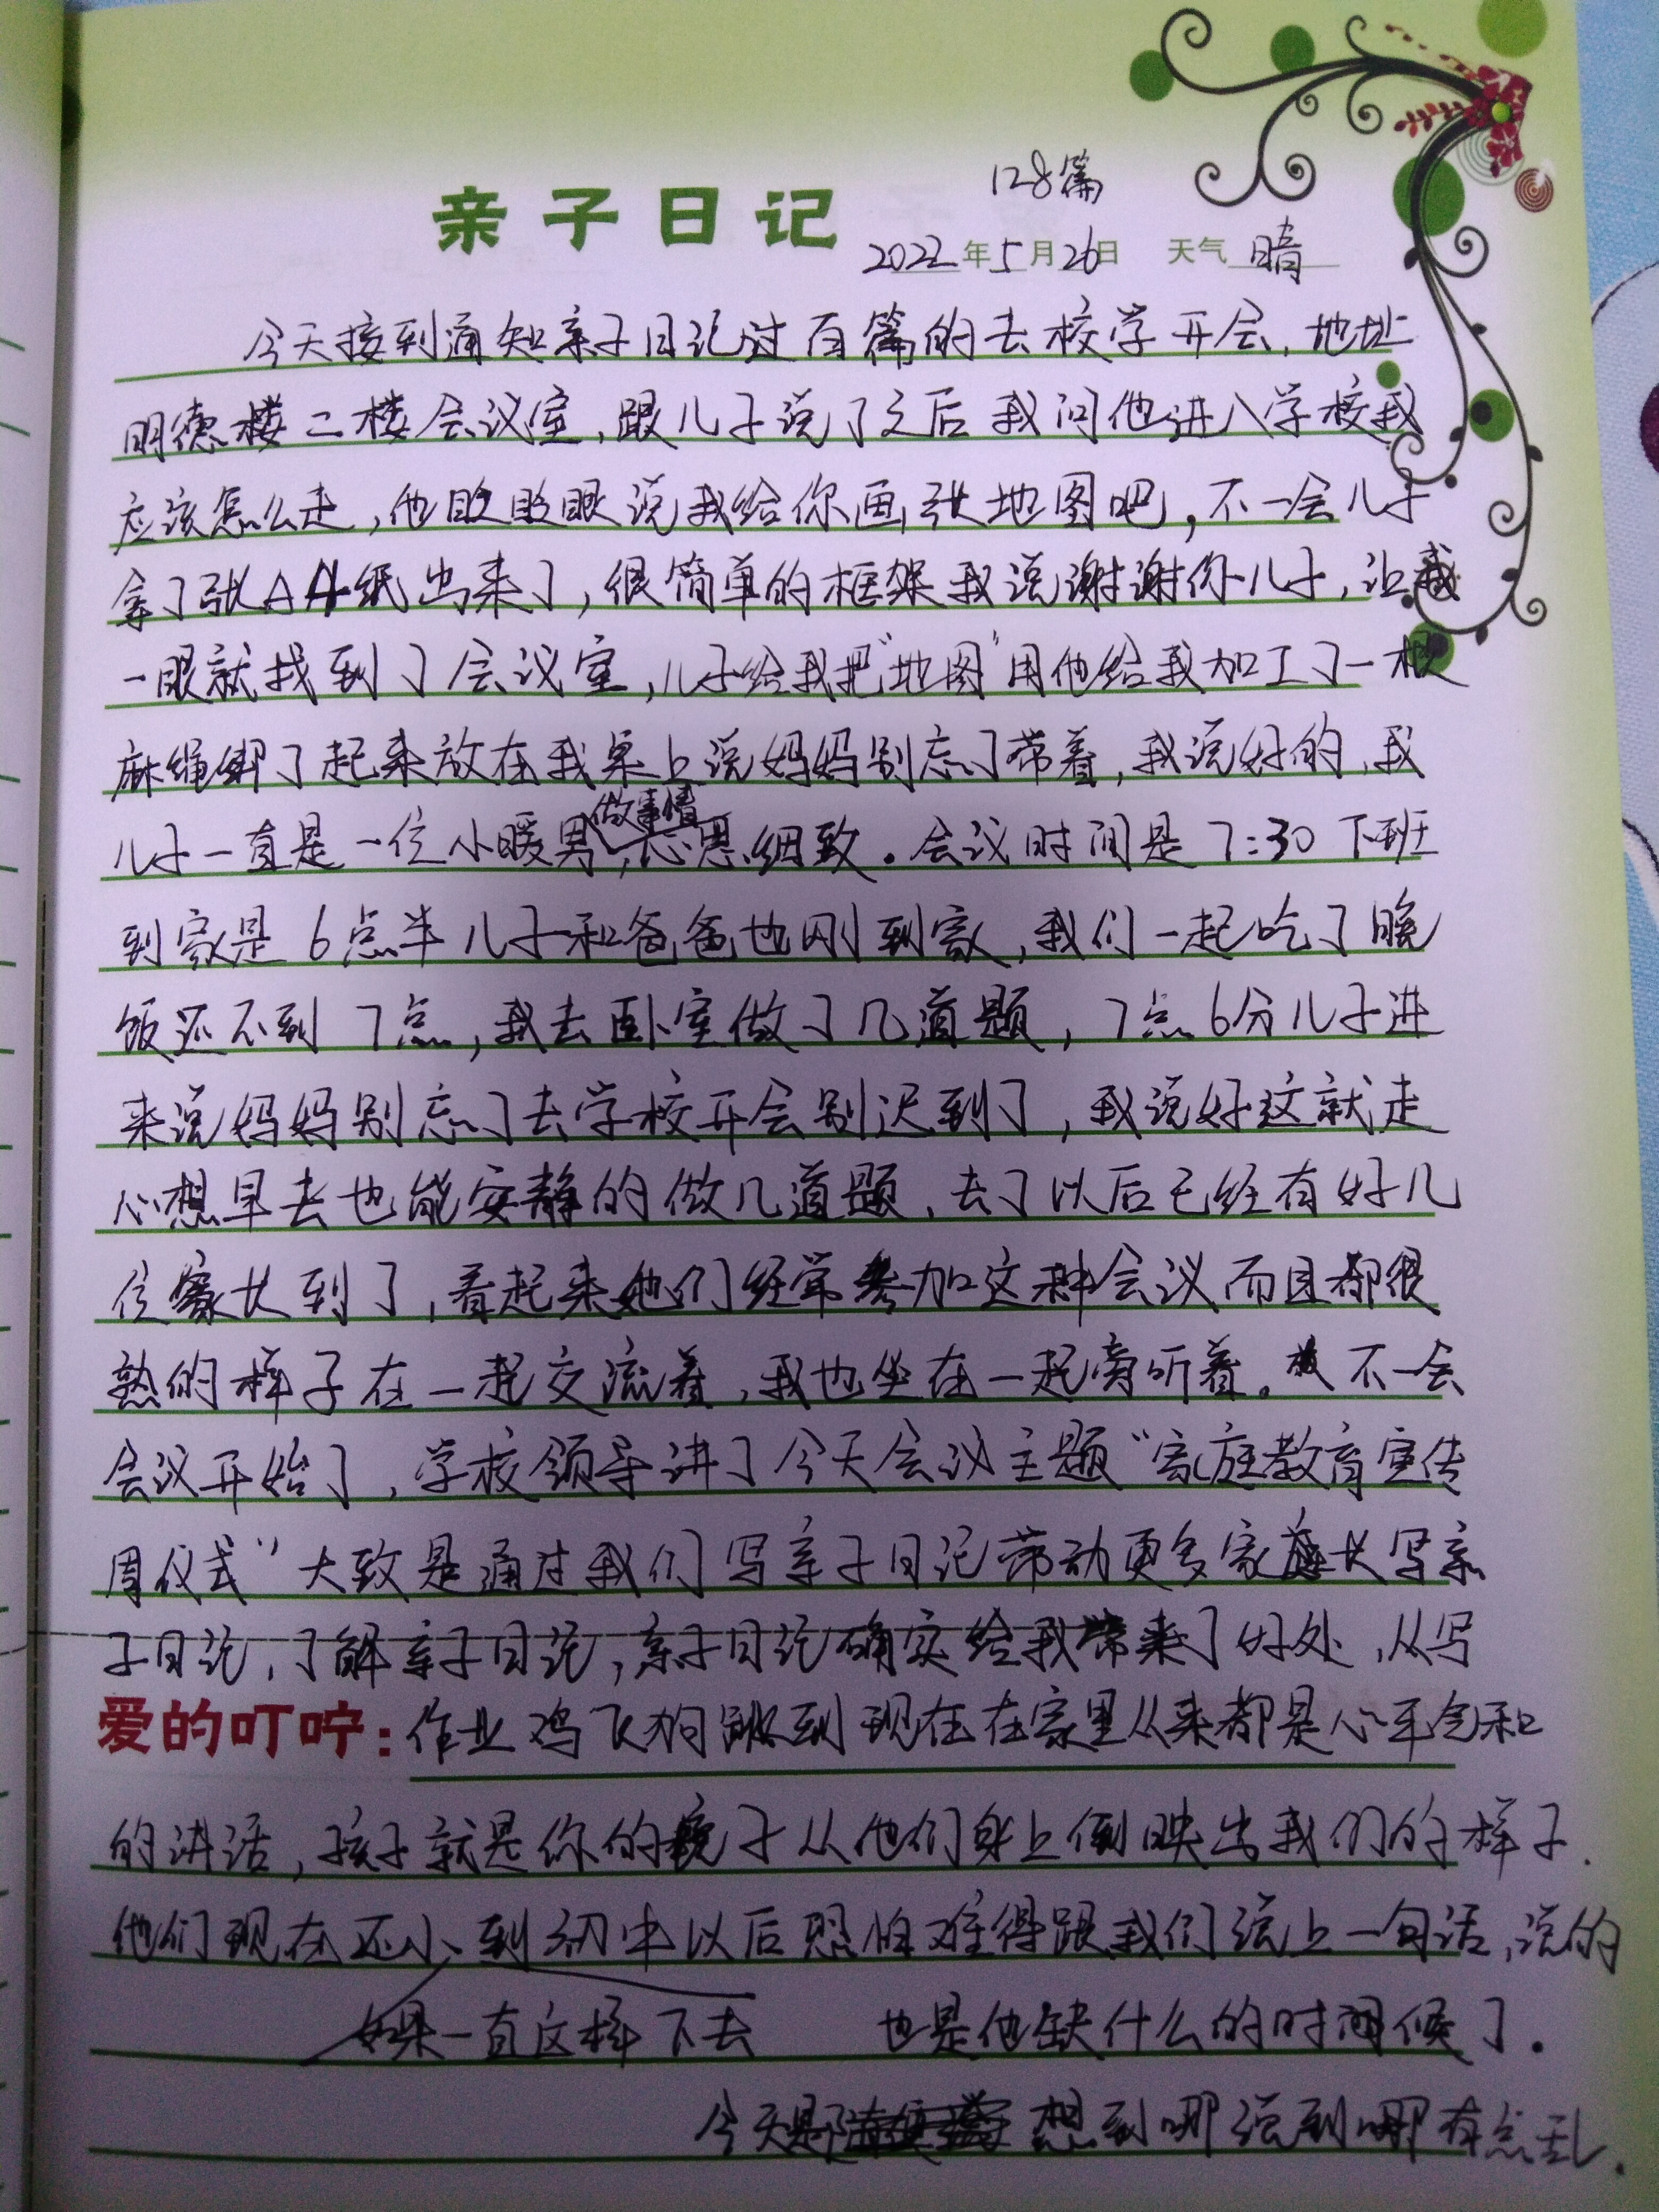 128篇
亲子日记
2022年5月26日 天气 晴
今天接到通知亲子日记过百篇的去校学开会,地址
明德楼二楼会议室,跟儿子说了之后我问他进入学校我
应该怎么走,他眨眨眼说我给你画张地图吧,不一会儿子
拿了张A4纸出来了,很简单的框架我说谢谢你儿子,让我
一眼就找到了会议室,儿子给我把“地图”用他给我加工了一根
麻绳绑了起来放在我桌上说妈妈别忘了带着,我说好的,我
做事情
儿子一直是一位小暖男,心思细致。会议时间是7:30下班
到家是6点半儿子和爸爸也刚到家,我们一起吃了晚
饭还不到7点,我去卧室做了几道题,7点6分儿子进
来说妈妈别忘了去学校开会别迟到了,我说好这就走
心想早去也能安静的做几道题,去了以后已经有好几
位家长到了,看起来她们经常参加这种会议而且都很
熟的样子在一起交流着,我也坐在一起旁听着。不一会
会议开始了,学校领导讲了今天会议主题“家庭教育宣传
周仪式”大致是通过我们写亲子日记带动更多家长写亲
子日记,了解亲子日记,亲子日记确实给我带来了好处,从写
爱的叮咛:作业鸡飞狗跳到现在在家里从来都是心平气和
的讲话,孩子就是你的镜子从他们身上倒映出我们的样子.
他们现在还小、到初中以后恐怕难得跟我们说上一句话,说的
如果一直这样下去 也是他缺什么的时候了.
今天是 想到哪说到哪有点乱.